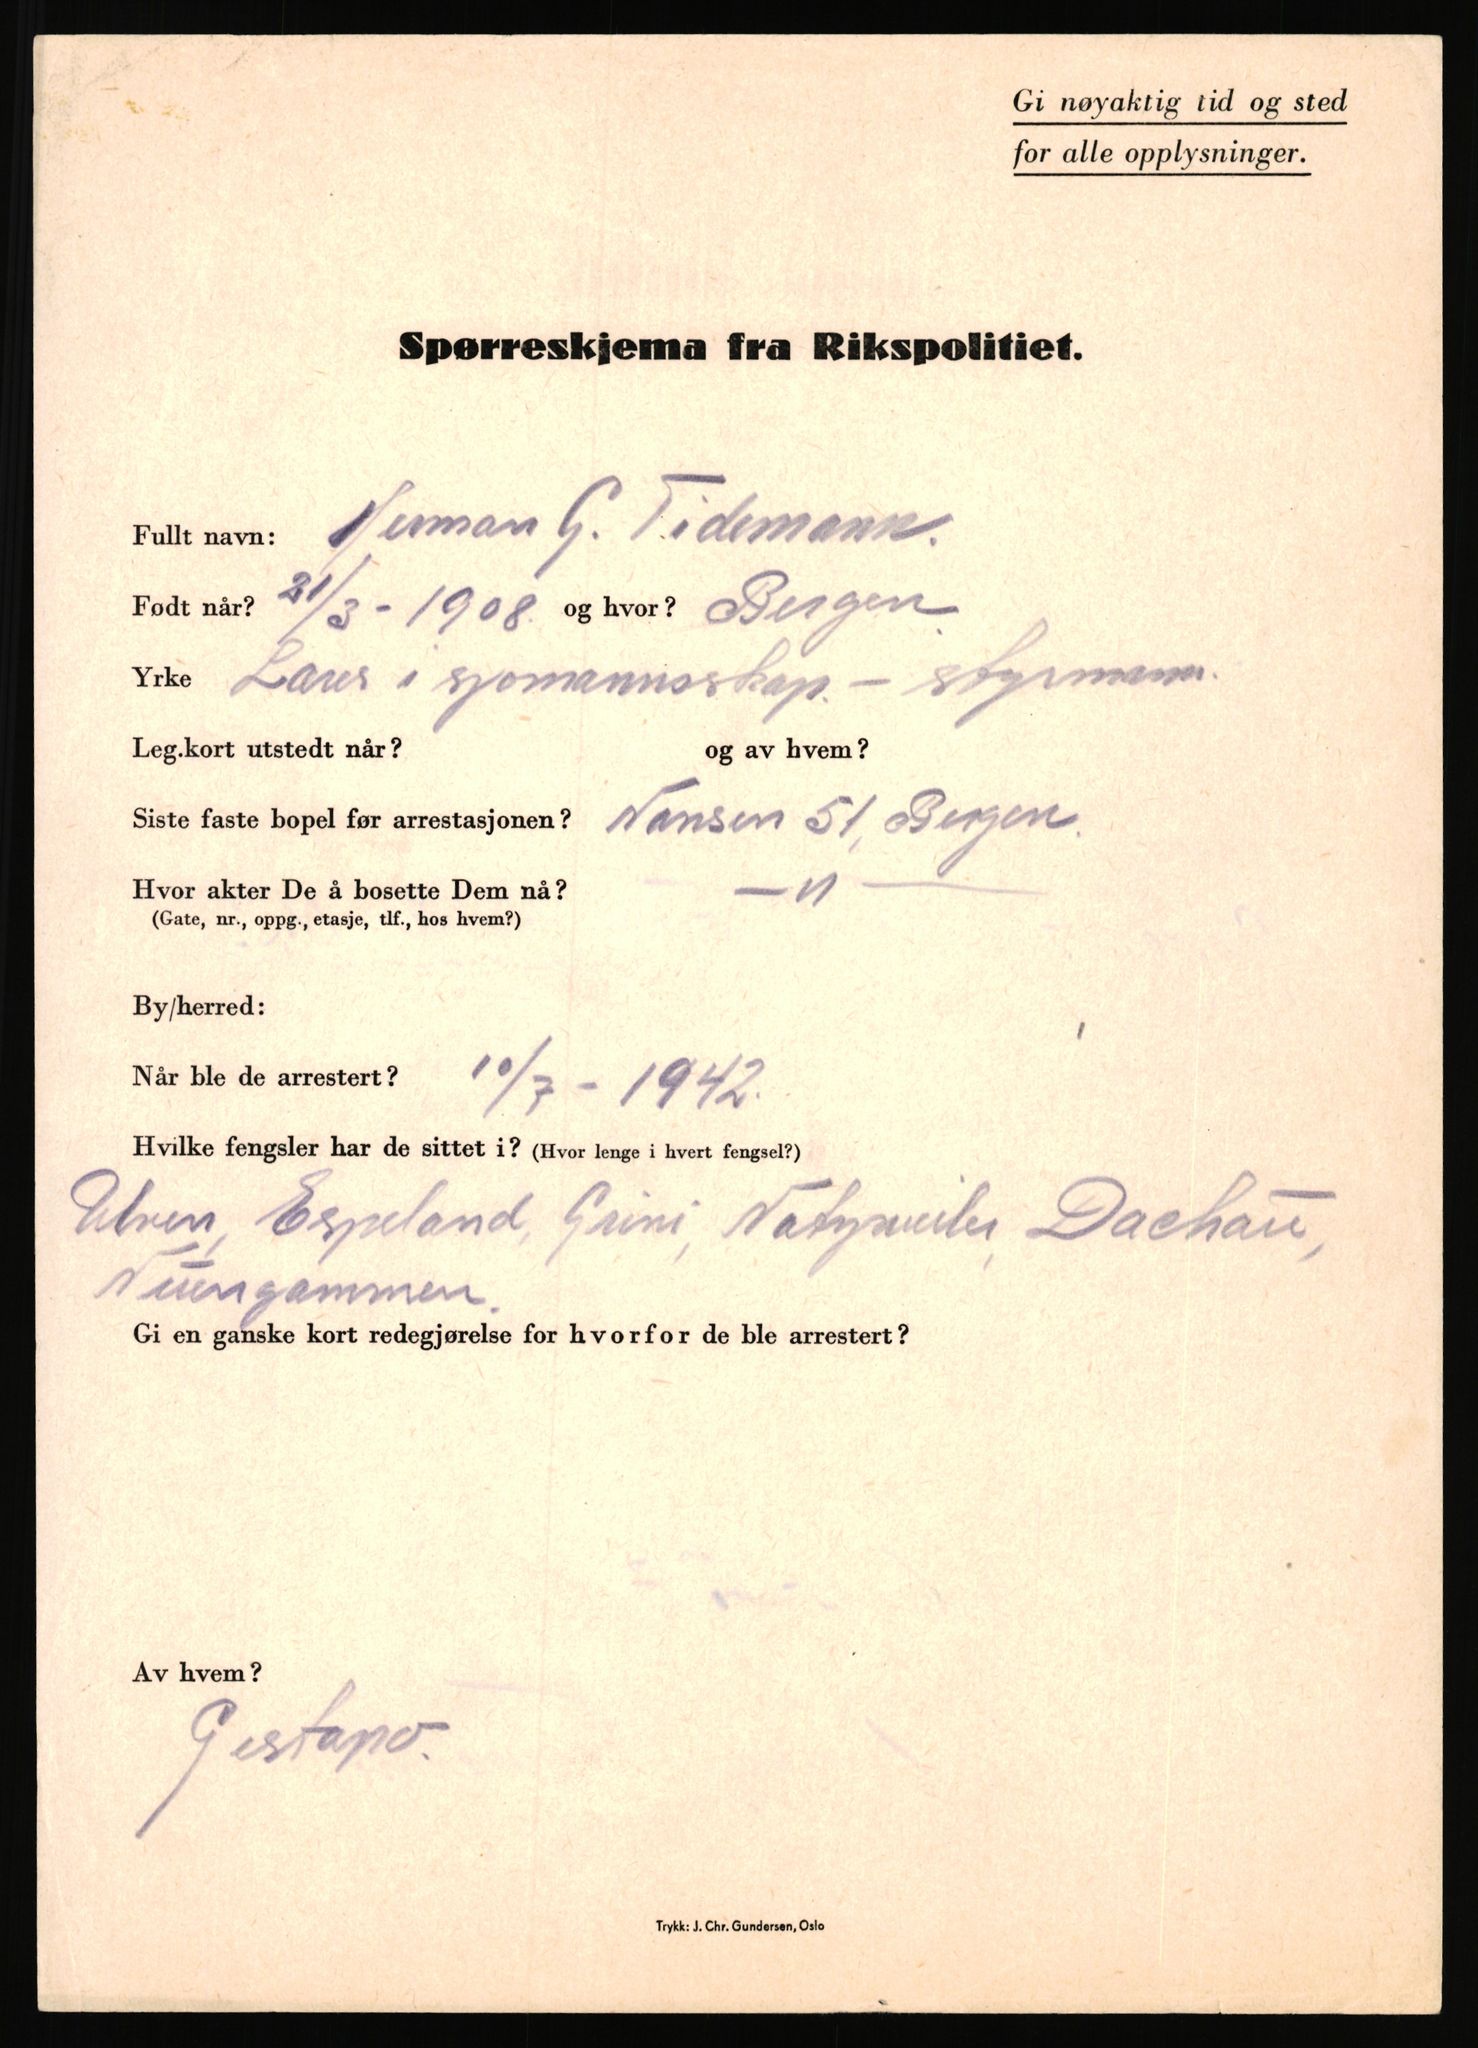 Gi nøyaktig tid og sted
for alle opplysninger.
Spørreskjema fra Rikspolitiet.
Fullt navn: Herman G. Tidemann.
Født når? 21/3 - 1908. og hvor? Bergen.
Yrke Lærer i sjømannsskap. - styrmann.
Leg.kort utstedt når? og av hvem?
Siste faste bopel før arrestasjonen? 51, Bergen.
Hvor akter De å bosette Dem nå? — " —
(Gate, nr., oppg., etasje, tlf., hos hvem?)
By/herred:
Når ble de arrestert? 10/7 - 1942.
Hvilke fengsler har de sittet i? (Hvor lenge i hvert fengsel?)
Ulven, Espeland, Grini, Natzweiler, Dachau,
Neuengammen.
Gi en ganske kort redegjørelse for hvorfor de ble arrestert?
Av hvem?
Gestapo.
Trykk: J. Chr. Gundersen, Oslo